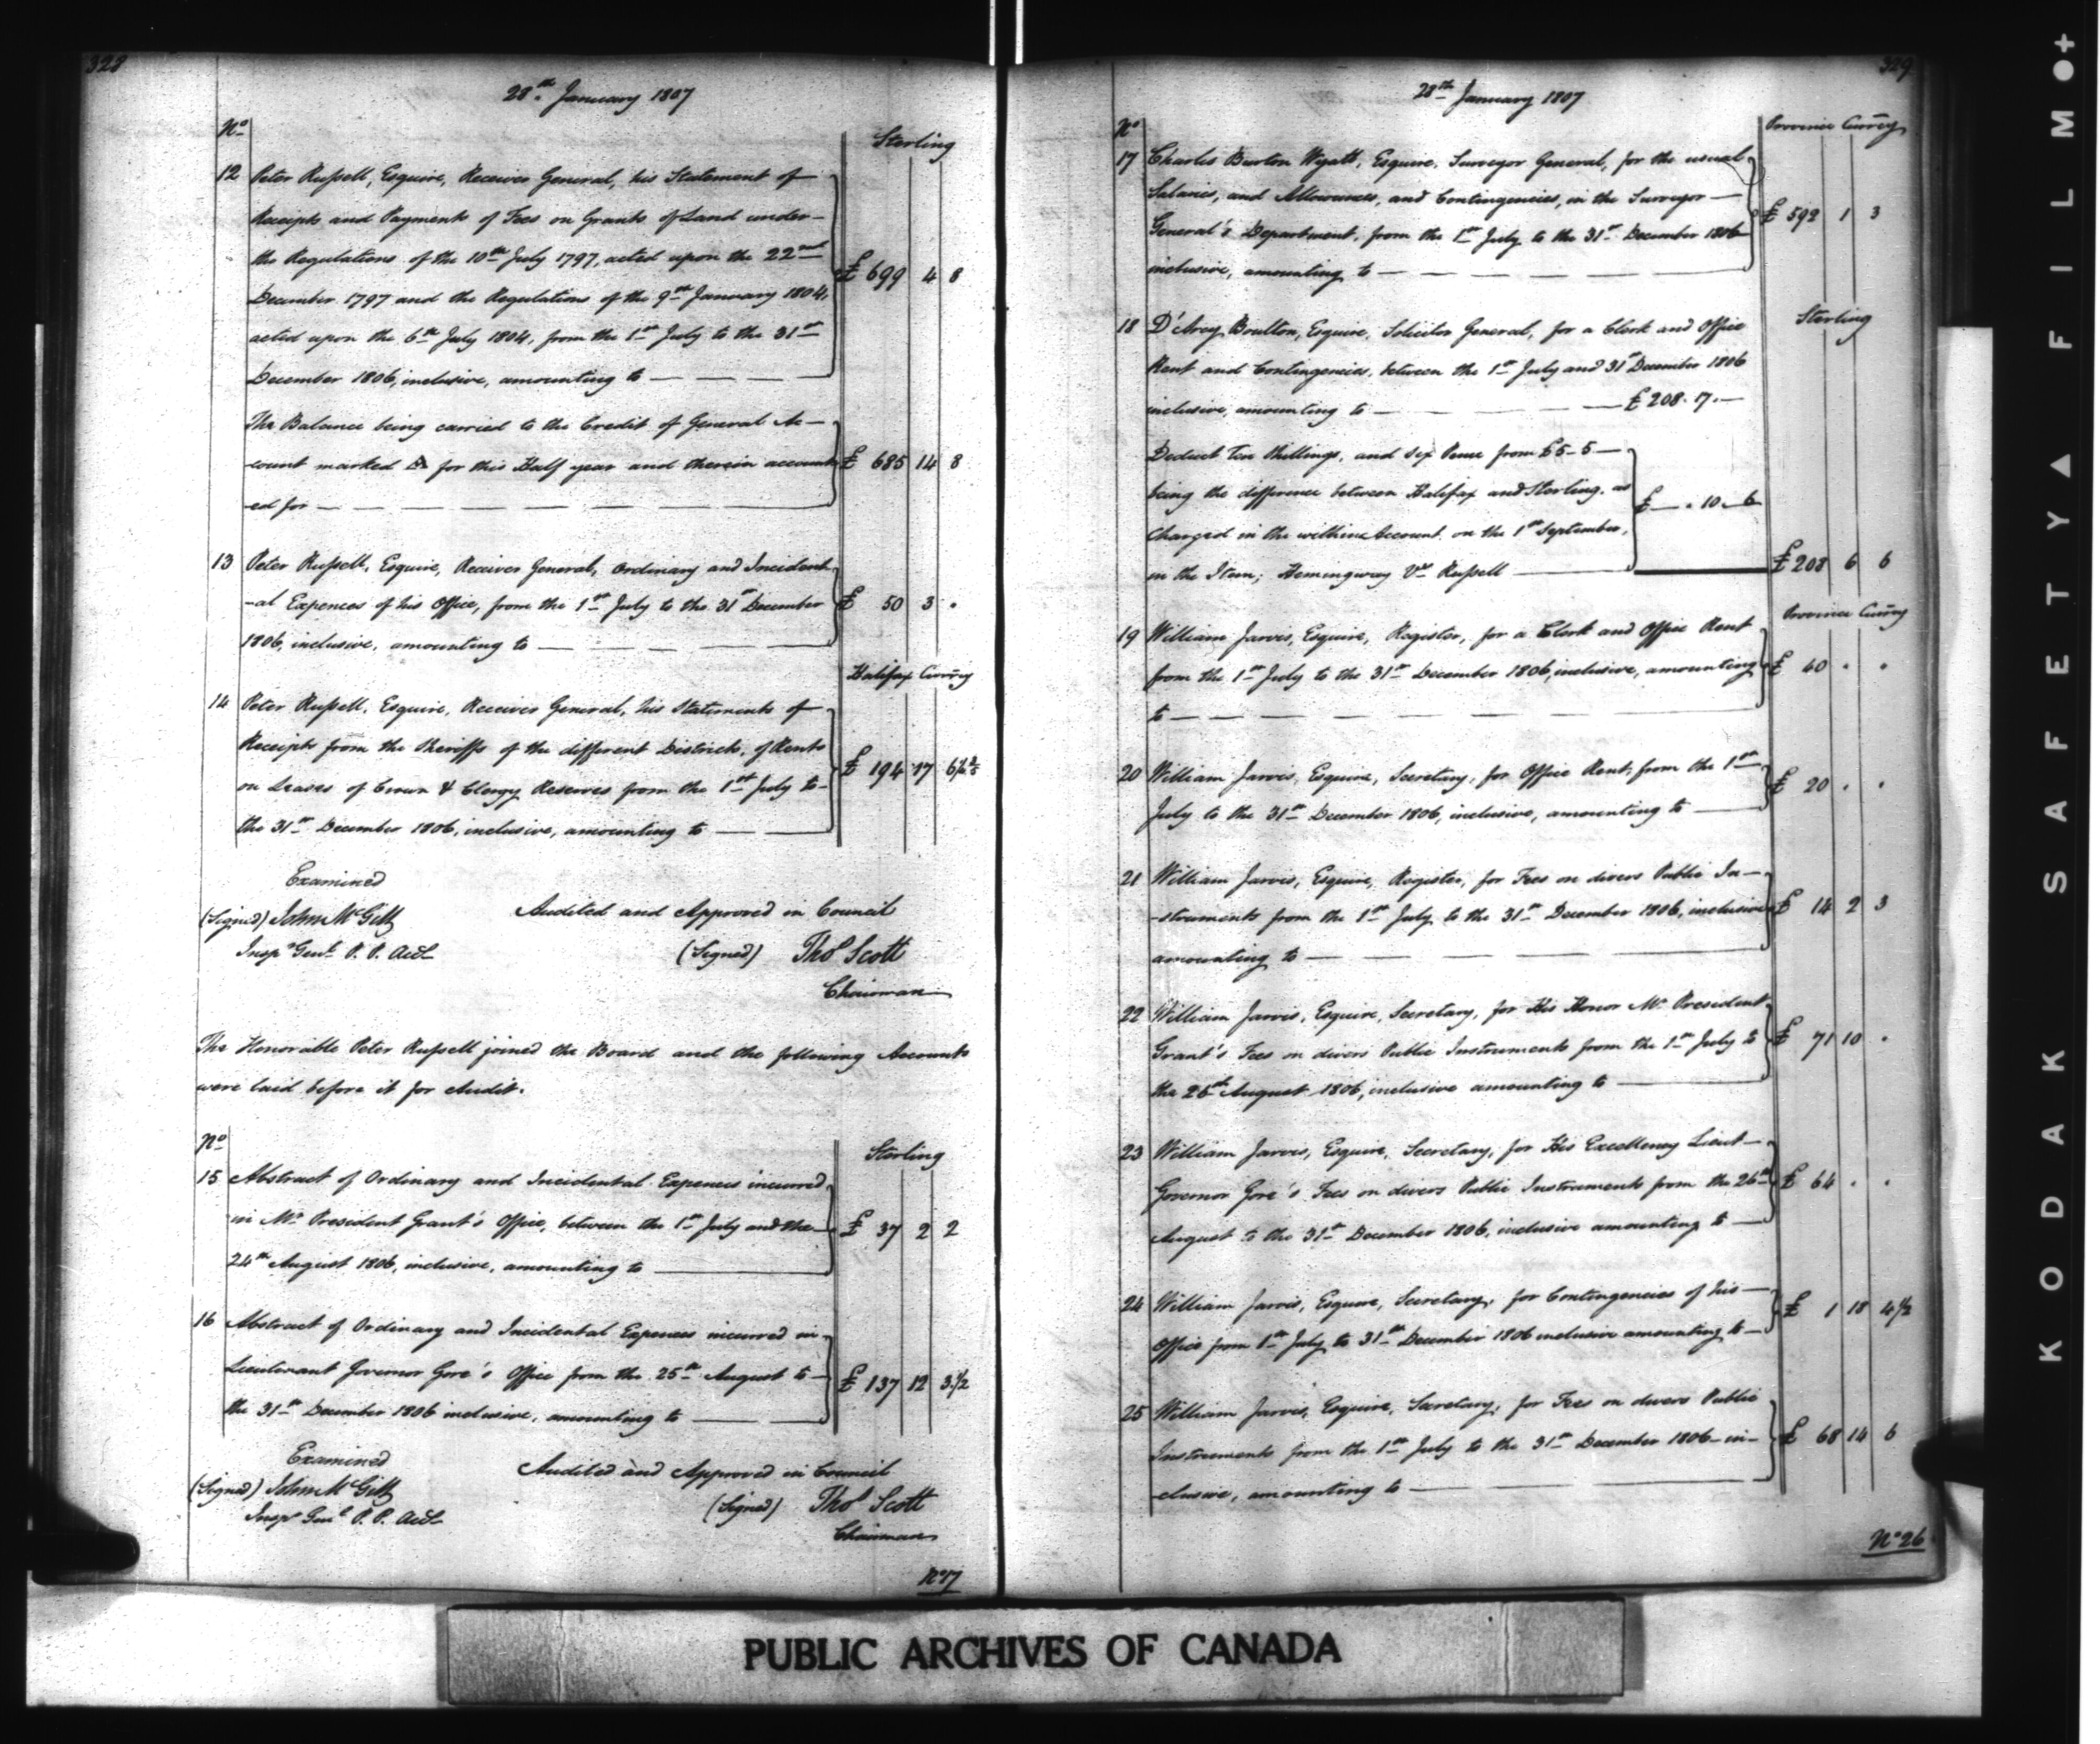 328
28th January 1807
No
Sterling
12 Peter Russell, Esquire, Receiver General, his Statement of
Receipts and Payments of Fees on Grants of Land under
the Regulations of the 10th July 1797, acted upon the 22nd
December 1797 and the Regulations of the 9th January 1804, £ 699 4 8
acted upon the 6th July 1804, from the 1st July to the 31st
December 1806, inclusive, amounting to
The Balance being carried to the Credit of General Ac-
count marked A for this Half year and therein account- £ 685 14 8
-ed for
13 Peter Russell, Esquire, Receiver General, Ordinary and Incident-
-al Expences of his Office, from the 1st July to the 31st December £ 50 3 "
1806, inclusive, amounting to
Halifax Currcy
14 Peter Russell, Esquire, Receiver General, his Statements of
Receipts from the Sheriffs of the different Districts, of Rents
on Leases of Crown & Clergy Reserves from the 1st July to £ 194 17 6½
the 31st December 1806, inclusive, amounting to
Examined
(Signed) John McGill
Audited and Approved in Council
Insp Genl P. P. Acct
(Signed) Thos Scott
Chairman
The Honorable Peter Russell joined the Board and the following Accounts
were laid before it for Audit.
No
Sterling
15 Abstract of Ordinary and Incidental Expences incurred
in Mr President Grant's Office, between the 1st July and the £ 37 2 2
24th August 1806, inclusive, amounting to
16 Abstract of Ordinary and Incidental Expences incurred in
Lieutenant Governor Gore's Office from the 25th August to £ 137 12 3½
the 31st December 1806 inclusive, amounting to
Examined
Audited and Approved in Council
(Signed) John McGill
(Signed) Thos Scott
Insp Genl P. P. Acct
Chairman
No 17
329
28th January 1807
No
Province Currcy
17 Charles Burton Wyatt, Esquire, Surveyor General, for the usual
Salaries, and Allowances, and Contingencies, in the Surveyor
General's Department, from the 1st July to the 31st December 1806 £ 592 1 3
inclusive, amounting to
Sterling
18 D'Arcy Boulton, Esquire, Solicitor General, for a Clerk and Office
Rent and Contingencies, between the 1st July and 31st December 1806
inclusive, amounting to £ 208. 17. —
Deduct Ten Shillings, and six Pence from £5-5-
being the difference between Halifax and Sterling, as £ — . 10 . 6
charged in the within Account on the 1st September,
in the Item; Hemingway Vs Russell £ 208 6 6
Province Currcy
19 William Jarvis, Esquire, Register, for a Clerk and Office Rent
from the 1st July to the 31st December 1806, inclusive, amounting £ 40 " "
to
20 William Jarvis, Esquire, Secretary, for Office Rent, from the 1st
July to the 31st December 1806, inclusive, amounting to £ 20 " "
21 William Jarvis, Esquire, Register, for Fees on divers Public In-
-struments from the 1st July to the 31st December 1806, inclusive £ 14 2 3
amounting to
22 William Jarvis, Esquire, Secretary, for His Honor Mr President
Grant's Fees on divers Public Instruments from the 1st July to £ 71 10 "
the 26th August 1806, inclusive amounting to
23 William Jarvis, Esquire, Secretary, for His Excellency Lieut-
Governor Gore's Fees on divers Public Instruments from the 26th £ 64 " "
August to the 31st December 1806, inclusive amounting to
24 William Jarvis, Esquire, Secretary, for Contingencies of his
Office from 1st July to 31st December 1806 inclusive amounting to £ 1 18 4½
25 William Jarvis, Esquire, Secretary, for Fees on divers Public
Instruments from the 1st July to the 31st December 1806 in- £ 68 14 6
-clusive, amounting to
No 26
PUBLIC ARCHIVES OF CANADA
KODAK SAFETY ▲ FILM ●+